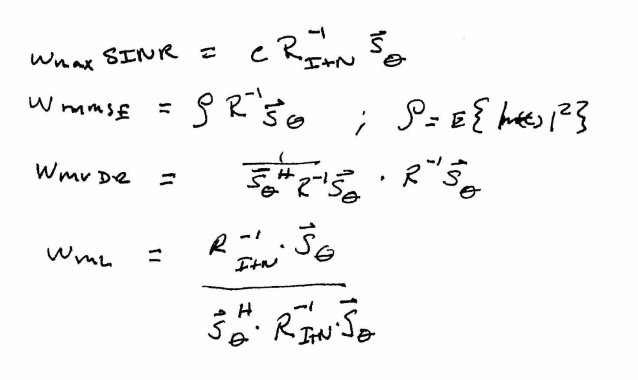 w_max SINR = c R_{I+N}^{-1} \vec{s}_θ
w_mmSE = ρ R^{-1} \vec{s}_θ ; ρ = E{|m(t)|^2}
w_mvDR = \frac{1}{\vec{s}_θ^H R^{-1} \vec{s}_θ} · R^{-1} \vec{s}_θ
w_mL = \frac{R_{I+N}^{-1} · \vec{s}_θ}{\vec{s}_θ^H · R_{I+N}^{-1} · \vec{s}_θ}